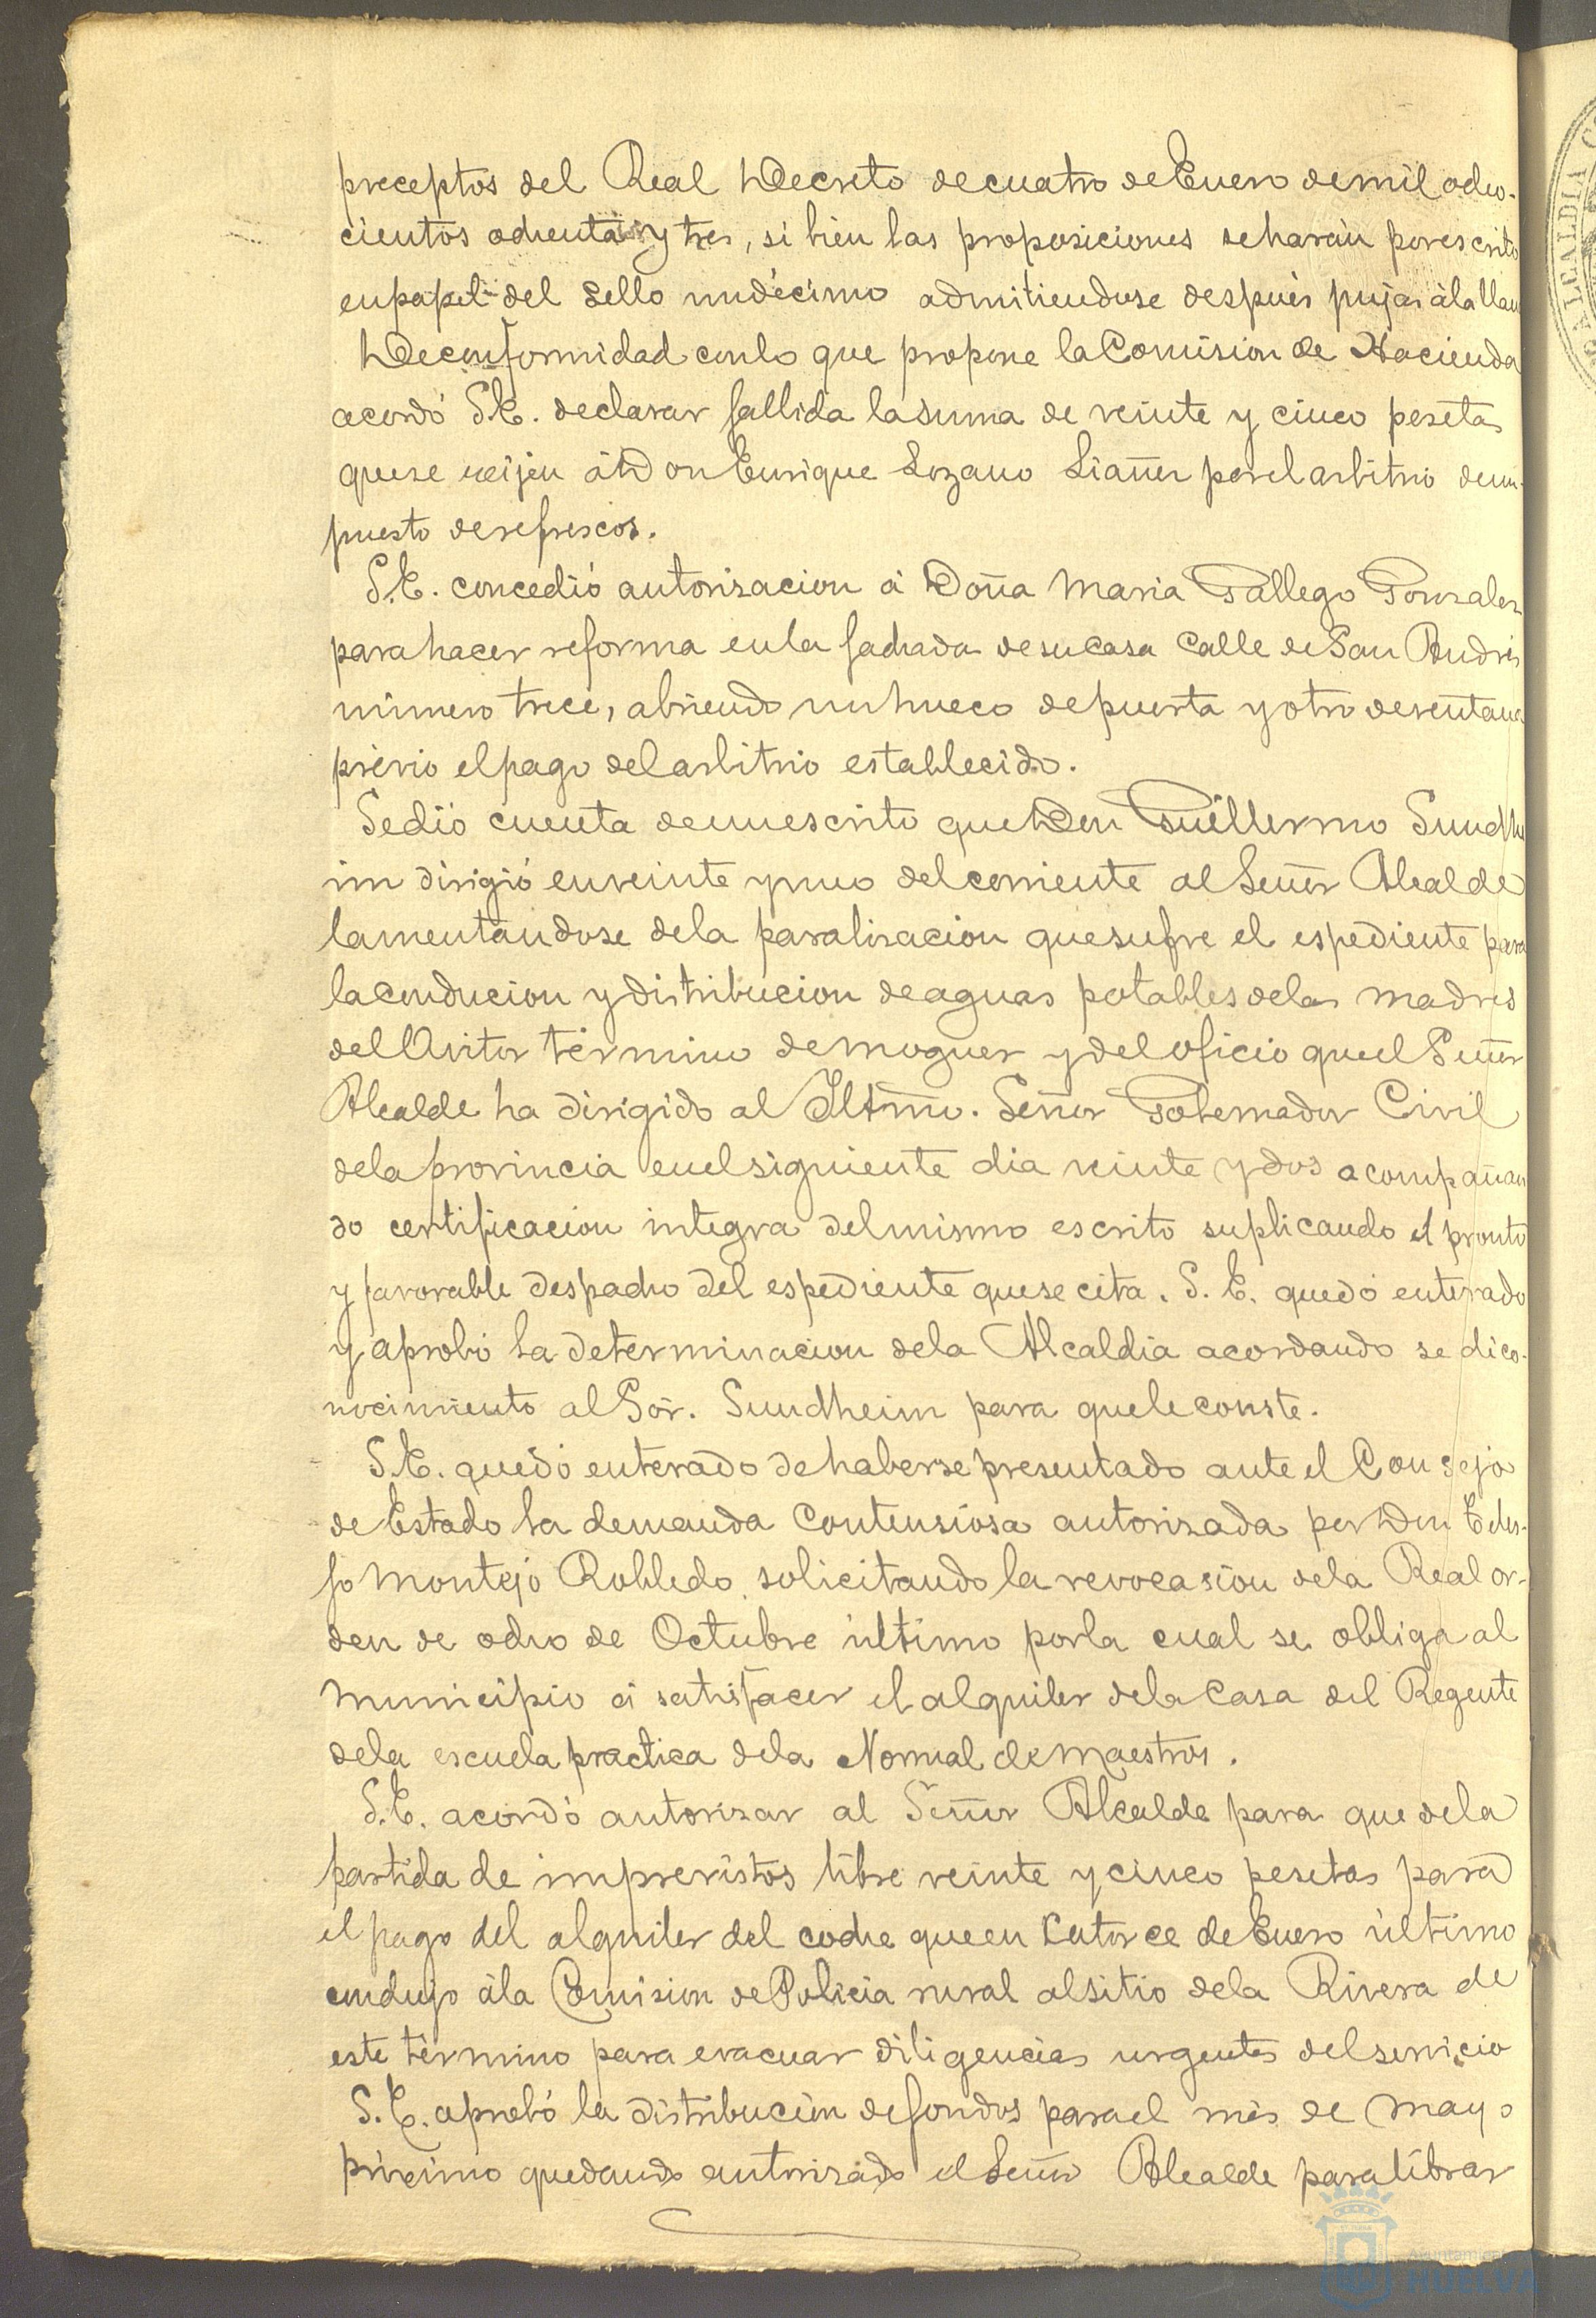 preceptos del Real Decreto de cuatro de Enero de mil ocho-
cientos ochenta y tres, si bien las proposiciones se harán por escrito
en papel del sello undécimo admitiendose después pujas á la llana
De conformidad con lo que propone la Comision de Hacienda
acordó S.E. declarar fallida la suma de veinte y cinco pesetas
que se exijen á Don Enrique Lozano Liañez por el arbitrio de un
puesto de refrescos.
S.E. concedió autorisacion á Doña Maria Gallego Gonzalez
para hacer reforma en la fachada de su casa Calle de San Andrés
número trece, abriendo un hueco de puerta y otro de ventana
prévio el pago del arbitrio establecido.
Se dió cuenta de un escrito que Don Guillermo Sundhe
im dirigió en veinte y uno del corriente al Señor Alcalde
lamentandose de la paralisacion que sufre el espediente para
la conducion y distribucion de aguas potables de las madres
del Avitor término de Moguer y del oficio que el Señor
Alcalde ha dirigido al Iltmo. Señor Gobernador Civil
de la provincia en el siguiente dia veinte y dos acompañan
do certificacion integra del mismo escrito suplicando el pronto
y favorable despacho del espediente que se cita. S. E. quedó enterado
y aprobó la determinacion de la Alcaldia acordando se dé co-
nocimiento al Sór. Sundheim para que le conste.
S.E. quedó enterado de haberse presentado ante el Consejo
de Estado la demanda contensiosa autorizada por Don Telés-
fo Montejo Robledo solicitando la revocasion de la Real or-
den de ocho de Octubre último por la cual se obliga al
Municipio á satisfacer el alquiler de la Casa del Regente
de la escuela practica de la Normal de Maestros.
S.E. acordó autorisar al Señor Alcalde para que de la
partida de imprevistos libre veinte y cinco pesetas para
el pago del alquiler del coche que en Catorce de Enero último
condujo á la Comision de Policia rural al sitio de la Rivera de
este término para evacuar diligencias urgentes del servicio
S.E. aprobó la distribución de fondos para el mes de Mayo
próximo quedando autorisado el Señor Alcalde para librar
ALCALDIA C
Ayuntamiento
HUELVA